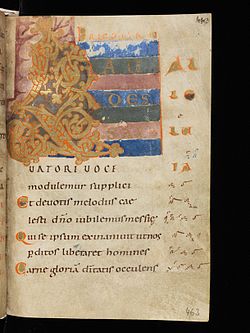 463
LAU
DES
AL
LE
LU
IA
UATORI UOCE
modulemur supplici
Et deuotis melodiis cae
lesti dño iubilemus messiȩ
Qui se ipsum exinaniuit ut nos
pditos liberaret homines
Carne gloriã deitatis occulens
463